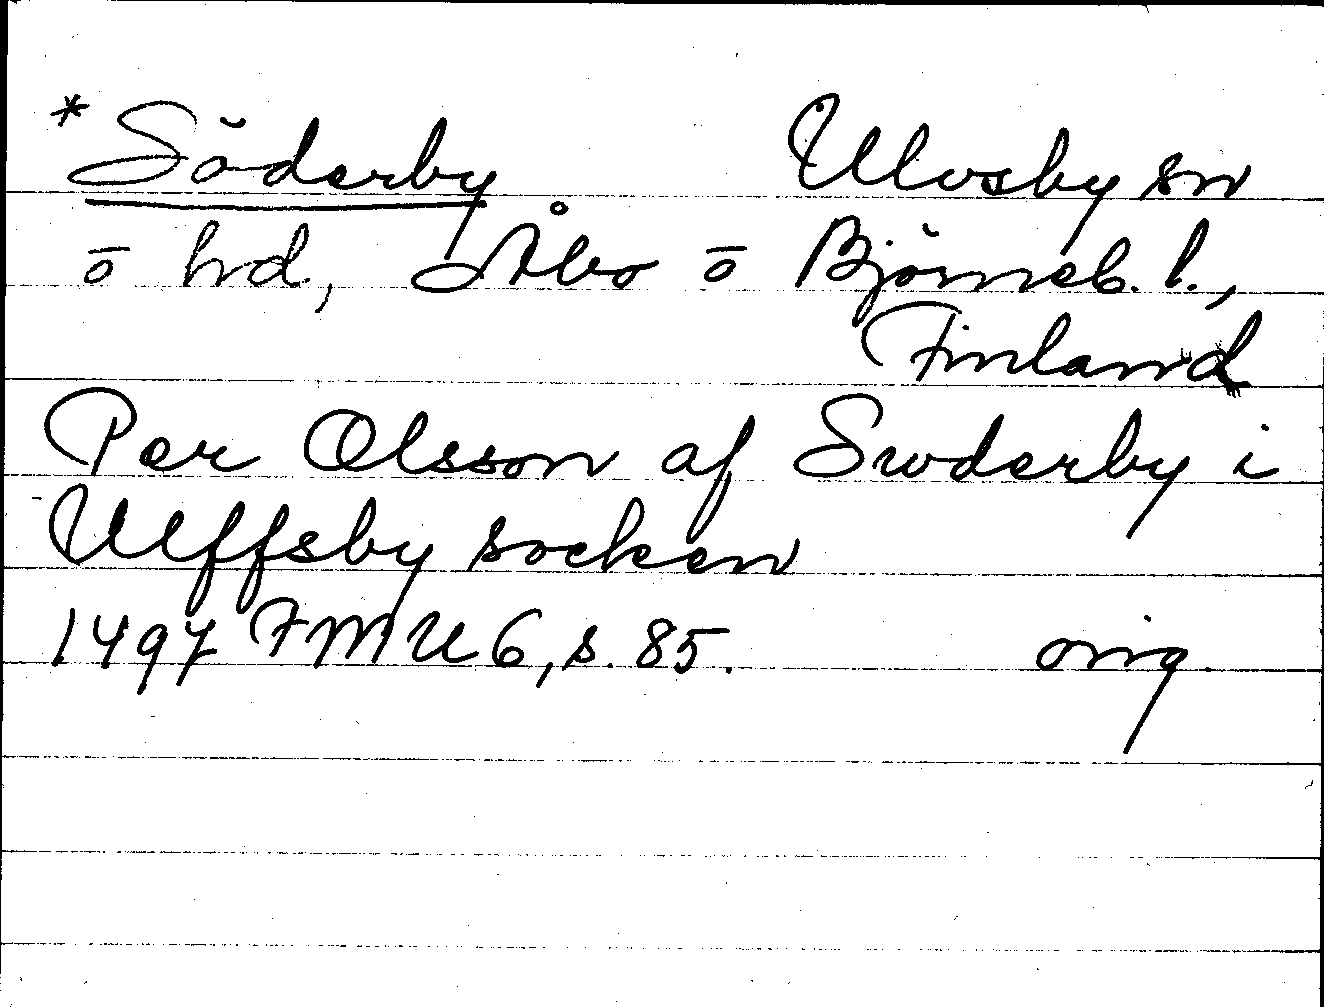 *Söderby Ulvsby sn
o hd., Åbo o Björneb. l.,
Finland
Per Olsson af Swderby i
Ulffsby socken
1497 FMU 6, s. 85. orig.